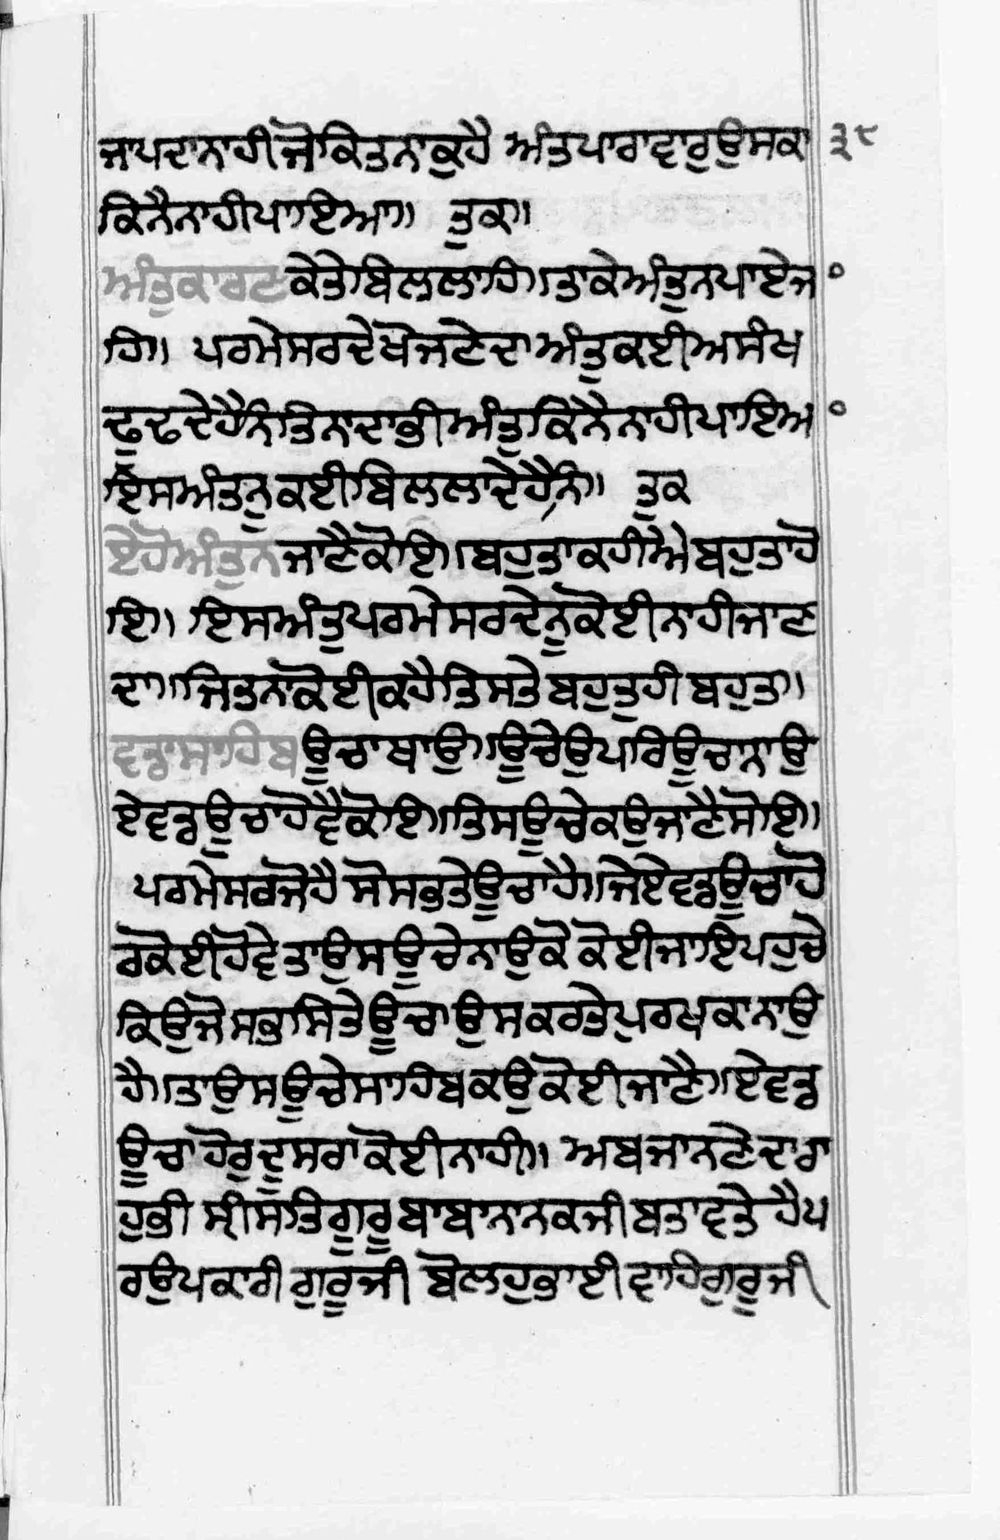 ਜਾਪਦਾਨਾਹੀਜੋਕਿਤਨਾਕੁਹੈ ਅੰਤਪਾਰਾਵਾਰੁਉਸਕਾ ੩੮
ਕਿਨੈਨਾਹੀਪਾਇਆ॥ ਤੁਕ॥
ਅੰਤੁਕਾਰਣਕੇਤੇਬਿਲਲਾਹਿ॥ਤਾਕੇਅੰਤੁਨਪਾਏਜ°
ਹਿ॥ ਪਰਮੇਸਰਦੇਖੋਜਣੇਦਾਅੰਤੁਕਈਅਸੰਖ
ਢੂਢਦੇਹੈਨਿਤਿਨਾਦਾਭੀਅੰਤੁਕਿਨੈਨਾਹੀਪਾਇਅ°
ਇਸਅੰਤਨੂਕਈਬਿਲਲਾਦੇਹੈਨਿ॥ ਤੁਕ
ਏਹੋਅੰਤੁਨਜਾਣੈਕੋਇ॥ਬਹੁਤਾਕਹੀਐਬਹੁਤਾਹੋ
ਇ॥ ਇਸਅੰਤੁਪਰਮੇਸਰਦੇਨੂਕੋਈਨਾਹੀਜਾਣ
ਦਾ॥ਜਿਤਨਾਕੋਈਕਹੈਤਿਸਤੇਬਹੁਤੁਹੀਬਹੁਤਾ॥
ਵਡਾਸਾਹਿਬਊਚਾਥਾਉ॥ਊਚੇਉਪਰਿਊਚਾਨਾਉ
ਏਵਡੁਊਚਾਹੋਵੈਕੋਇ॥ਤਿਸਊਚੇਕਉਜਾਣੈਸੋਇ॥
ਪਰਮੇਸਰਜੋਹੈ ਸੋਸਭਤੇਊਚਾਹੈ॥ਜੇਏਵਡੁਊਚਾਹੋ
ਰਕੋਈਹੋਵੇਤਾਉਸਊਚੇਨਾਉਕੋਕੋਈਜਾਇਪਹੁਚੇ
ਕਿਉਜੋਸਭਸਿਤੇਊਚਾਉਸਕਰਤੇਪੁਰਖਕਾਨਾਉ
ਹੈ॥ਤਾਉਸਊਚੇਸਾਹਿਬਕਉਕੋਈਜਾਣੈ॥ਏਵਡੁ
ਊਚਾਹੋਰੁਦੂਸਰਾਕੋਈਨਾਹੀ॥ ਅਬਜਾਨਣੇਦਾਰਾ
ਹੁਭੀ ਸ੍ਰੀਸਤਿਗੁਰੂਬਾਬਾਨਾਨਕਜੀਬਤਾਵਤੇ ਹੈਪ
ਰਉਪਕਾਰੀ ਗੁਰੂਜੀ ਬੋਲਹੁਭਾਈਵਾਹਿਗੁਰੂਜੀ